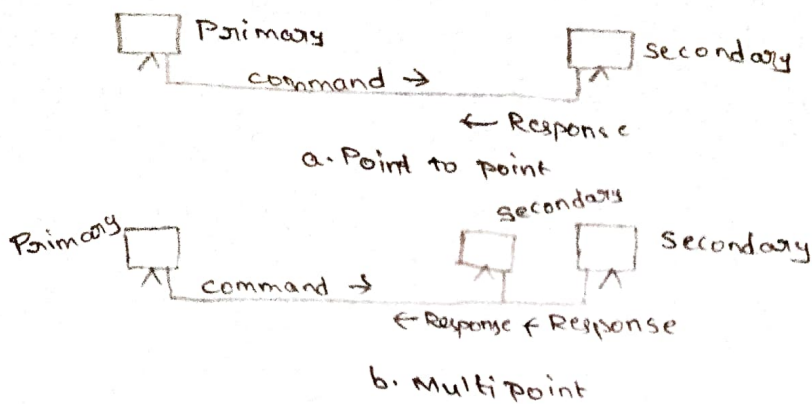 Primary
secondary
command →
← Response
a. Point to point
secondary
Primary
Secondary
command →
← Response ← Response
b. Multipoint